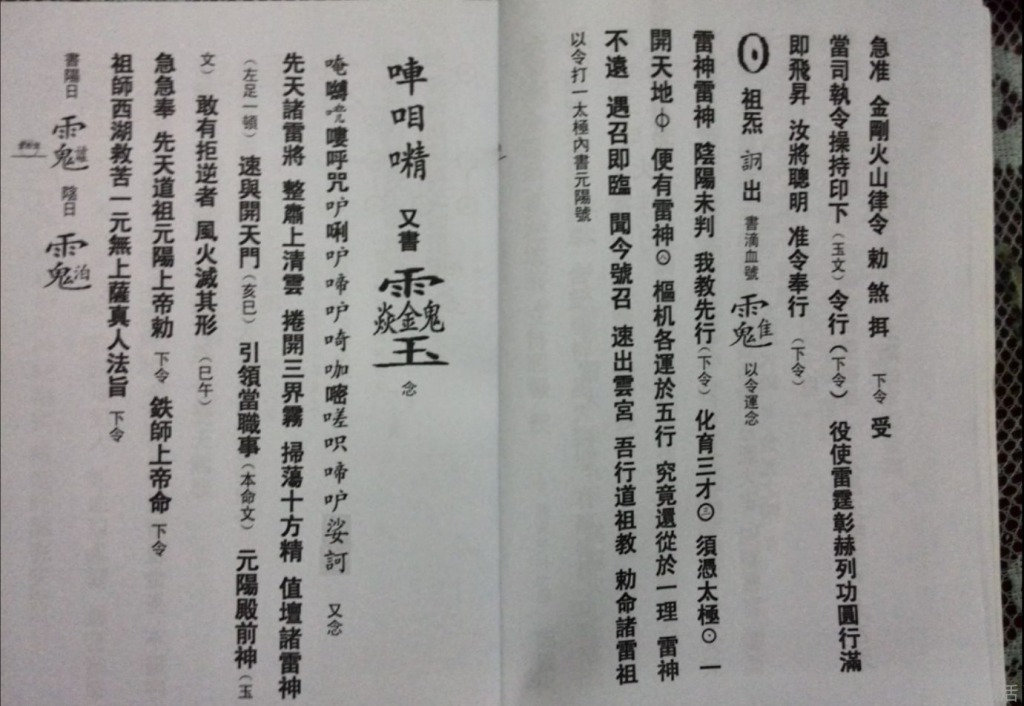 急准　金剛火山律令　勅　煞　挕　下令　受
當司執令操持印下（玉文）令行（下令）　役使雷霆彰赫列功圓行滿
即飛昇　汝將聰明　准令奉行　（下令）
祖炁　出　書滴血號　以令運念
雷神雷神　陰陽未判　我教先行（下令）　化育三才　須憑太極⊙　一
開天地　便有雷神　樞机各運於五行　究竟還從於一理　雷神
不遠　遇召即臨　聞今號召　速出雲宮　吾行道祖教　勅命諸雷祖
以令打一太極內書元陽號
唓　呾　又書　念
唵　嘍呼咒　唎　啼　唏　咖嘧嗟呎啼　娑訶　又念
先天諸雷將　整肅上清雲　捲開三界霧　掃蕩十方精　值壇諸雷神
（左足一頓）　速與開天門（亥巳）　引領當職事（本命文）　元陽殿前神（玉
文）　敢有拒逆者　風火滅其形　（巳午）
急急奉　先天道祖元陽上帝勅　下令　鉄師上帝命　下令
祖師西湖救苦一元無上薩真人法旨　下令
書陽日　陰日